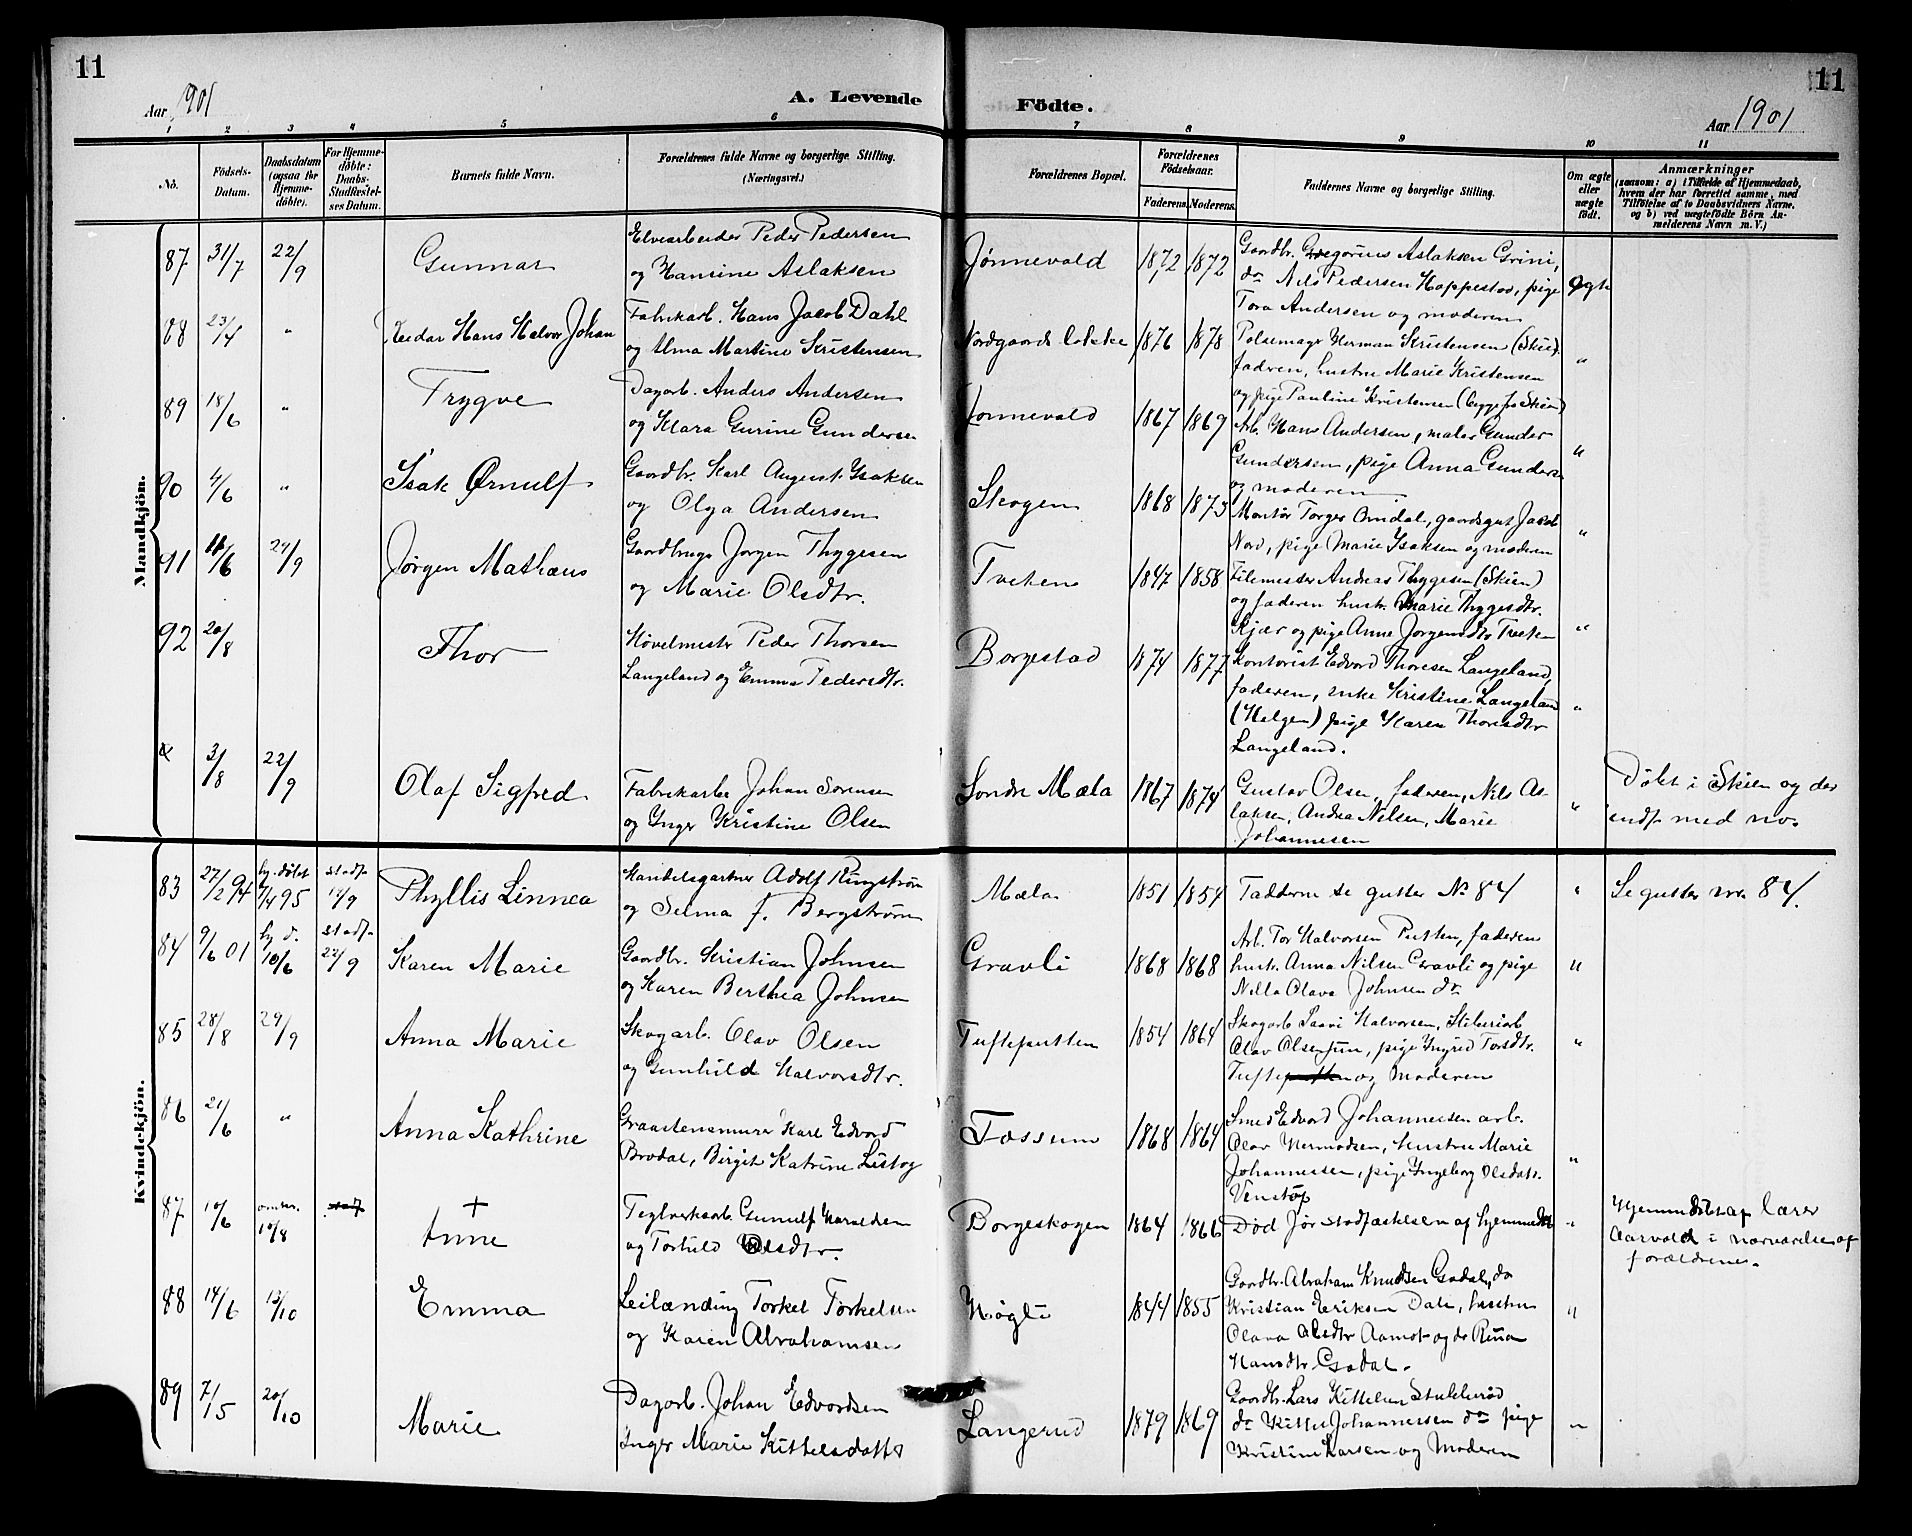 11
Aar 1901
A. Levende Födte.
Aar 1901
11
1 2 3 4 5 6 7 8 9 10 11
No.
Födsels-Datum.
Daabsdatum (ogsaa for Hjemme-döbte).
For Hjemme-döbte: Daabs-Stadfæstel-ses Datum.
Barnets fulde Navn.
Forældrenes fulde Navne og borgerlige Stilling.
(Næringsvei.)
Forældrenes Bopæl.
Forældrenes Födselsaar.
Faderens. Moderens.
Faddernes Navne og borgerlige Stilling.
Om ægte eller uægte födt.
Anmærkninger
(saasom: a) i Tilfælde af Hjemmedaab, hvem der har forrettet samme, med Tilföielse af to Daabsvidners Navne, og b) ved uægtefödte Börn An-melderens Navn m. V.)
Mandkjön.
87 31/7 22/9 Gunnar
Elvearbeider Peder Pedersen
og Hansine Aslaksen
Jønnevald 1872 1872
Gaardbr. Gregorius Aslaksen Grini,
do Nils Pedersen Hoppestad, pige
Tora Andersen og moderen
Ægte
88 23/4 " Reidar Hans Halvor Johan
Fabrikarb. Hans Jacob Dahl
og Alma Martine Kristensen
Nordgaards løkke 1876 1878
Pølsemager Herman Kristensen (Skien)
faderen, hustru Marie Kristensen
og pige Pauline Kristensen (begge fra Skien)
"
89 18/6 " Trygve
Dagarb. Anders Andersen
og Klara Gurine Gundersen
Jønnevald 1867 1869
Arb. Hans Andersen, maler Gunder
Gundersen, pige Anna Gundersen
og moderen
"
90 4/6 " Isak Ørnulf
Gaardbr. Karl August Isaksen
og Olga Andersen
Skogen 1868 1873
Montør Torger Omdal, gaardsgut Jacob
Nord, pige Marie Isaksen og moderen
"
91 11/6 29/9 Jørgen Mathæus
Gaardbruger Jørgen Thygesen
og Marie Olsdtr.
Tveten 1847 1858
Filemester Andreas Thygesen (Skien)
og faderen hustr. Marie Thygesdtr.
Kjær og pige Anne Jørgensdtr Tveten
"
92 20/8 Thor
Høvelmestr Peder Thorsen
Langeland og Emma Pedersdtr.
Borgestad 1874 1877
Kontorist Edvard Thoresen Langeland,
faderen, enke Kristine Langeland
(Helgen) pige Karen Thorsdtr
Langeland.
"
3/8 22/9 Olaf Sigfred
Fabrikarb Johan Sørensen
og Inger Kristine Olsen
Søndre Mæla 1867 1874
Gustav Olsen, faderen, Nils As-
laksen, Andrea Nilsen, Marie
Johannesen
"
Døbt i Skien og der
indf. med no.
Kvindekjön.
83 27/2 94 hj. døbt 7/4 95 stadf. 12/9 Phyllis Linnea
Handelsgartner Adolf Ringstrøm
og Selma F. Bergstrøm
Mæla 1851 1854
Fadderne se gutter No 84
"
Se gutter no. 84.
84 9/6 01 hj d. 10/6 stadf. 22/9 Karen Marie
Gaardbr. Kristian Johnsen
og Karen Berthea Johnsen
Gravli 1868 1868
Arb. Tor Halvorsen Putten, faderen
hustr. Anna Nilsen Gravli og pige
Nilla Olava Johnsen do
"
85 28/8 29/9 Anna Marie
Skogarb. Olav Olsen
og Gunhild Halvorsdtr.
Tufteputten 1854 1864
Skogarb Saavi Halvorsen, Sliberiarb
Olav Olsen jun, pige Ingrid Torsdtr.
Tufteputten og Moderen
"
86 21/6 " Anna Kathrine
Graastensmurer Karl Edvard
Brodal, Birgit Katrine Listog
Fossum 1868 1864
Smed Edvard Johannessen arb.
Olav Hermodsen, hustru Marie
Johannessen, pige Ingeborg Olsdatr.
Venstøp
"
87 10/6 10/8 stadf + Anne
Teglverksarb. Gunulf Haraldsen
og Torhild Olsdtr.
Borgeskogen 1864 1866
Død før stadfæstelsen af hjemmedåb
"
Hjemmedøbt af lærer
Aarvold i nærværelse af
forældrene.
88 14/6 13/10 Emma
Leilænding Torkel Torkelsen
og Karen Abrahamsen
Høgli 1844 1855
Gaardbr. Abraham Knudsen Gsodal, do
Kristian Eriksen Dale, hustru
Olava Olsdtr Aamot og do Rina
Hansdtr. Gsodal.
"
89 7/5 20/10 Marie
Dagarb. Johan Edvardsen
Inger Marie Kittelsdatter
Langerud 1879 1869
Gaardbr. Lars Kittelsen Stulerød
do Kittel Johannessen do pige
Kristine Larsen og Moderen
"